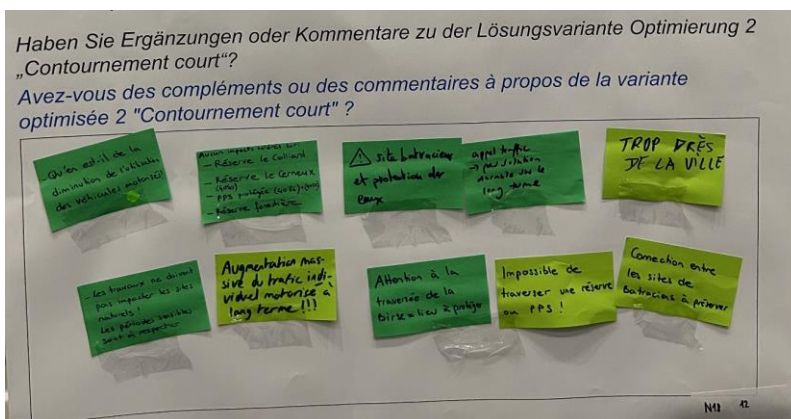 Haben Sie Ergänzungen oder Kommentare zu der Lösungsvariante Optimierung 2
„Contournement court“?
Avez-vous des compléments ou des commentaires à propos de la variante
optimisée 2 "Contournement court" ?
- Qu'en est-il de la
diminution de l'utilisation
des véhicules motorisés?
Aucun impacts
- Réserve le Colliard
- Réserve le Cerneux
- PPS
- Réserve forestière
⚠ site batracien
et protection des
eaux
appel traffic
→ pas solution
durable sur le
long terme
TROP PRÈS
DE LA VILLE
- Les travaux ne doivent
pas impacter les sites
naturels !
Les périodes sensibles
sont à respecter
Augmentation mas-
sive du trafic indi-
viduel motorisé à
long terme !!!
Attention à la
traversée de la
Birse = lieu à protéger
Impossible de
traverser une réserve
ou PPS !
Connection entre
les sites de
Batraciens à préserver
N18 12